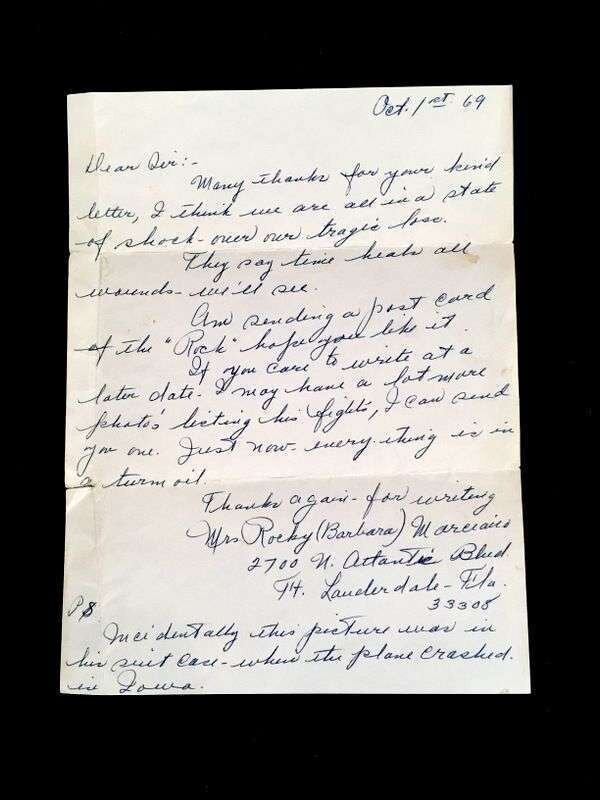 Oct. 1st 69
Dear Sir:-
Many thanks for your kind
letter, I think we are all in a state
of shock- over our tragic loss.
They say time heals all
wounds- we'll see.
Am sending a post card
of the "Rock" hope you like it.
If you care to write at a
later date. I may have a lot more
photo's listing his fights, I can send
you one. Just now- every thing is in
a turmoil.
Thanks again- for writing
Mrs Rocky (Barbara) Marciano
2700 N. Atlantic Blvd.
Ft. Lauderdale- Fla.
33308
PS
Incidentally this picture was in
his suit case- when the plane crashed.
in Iowa.